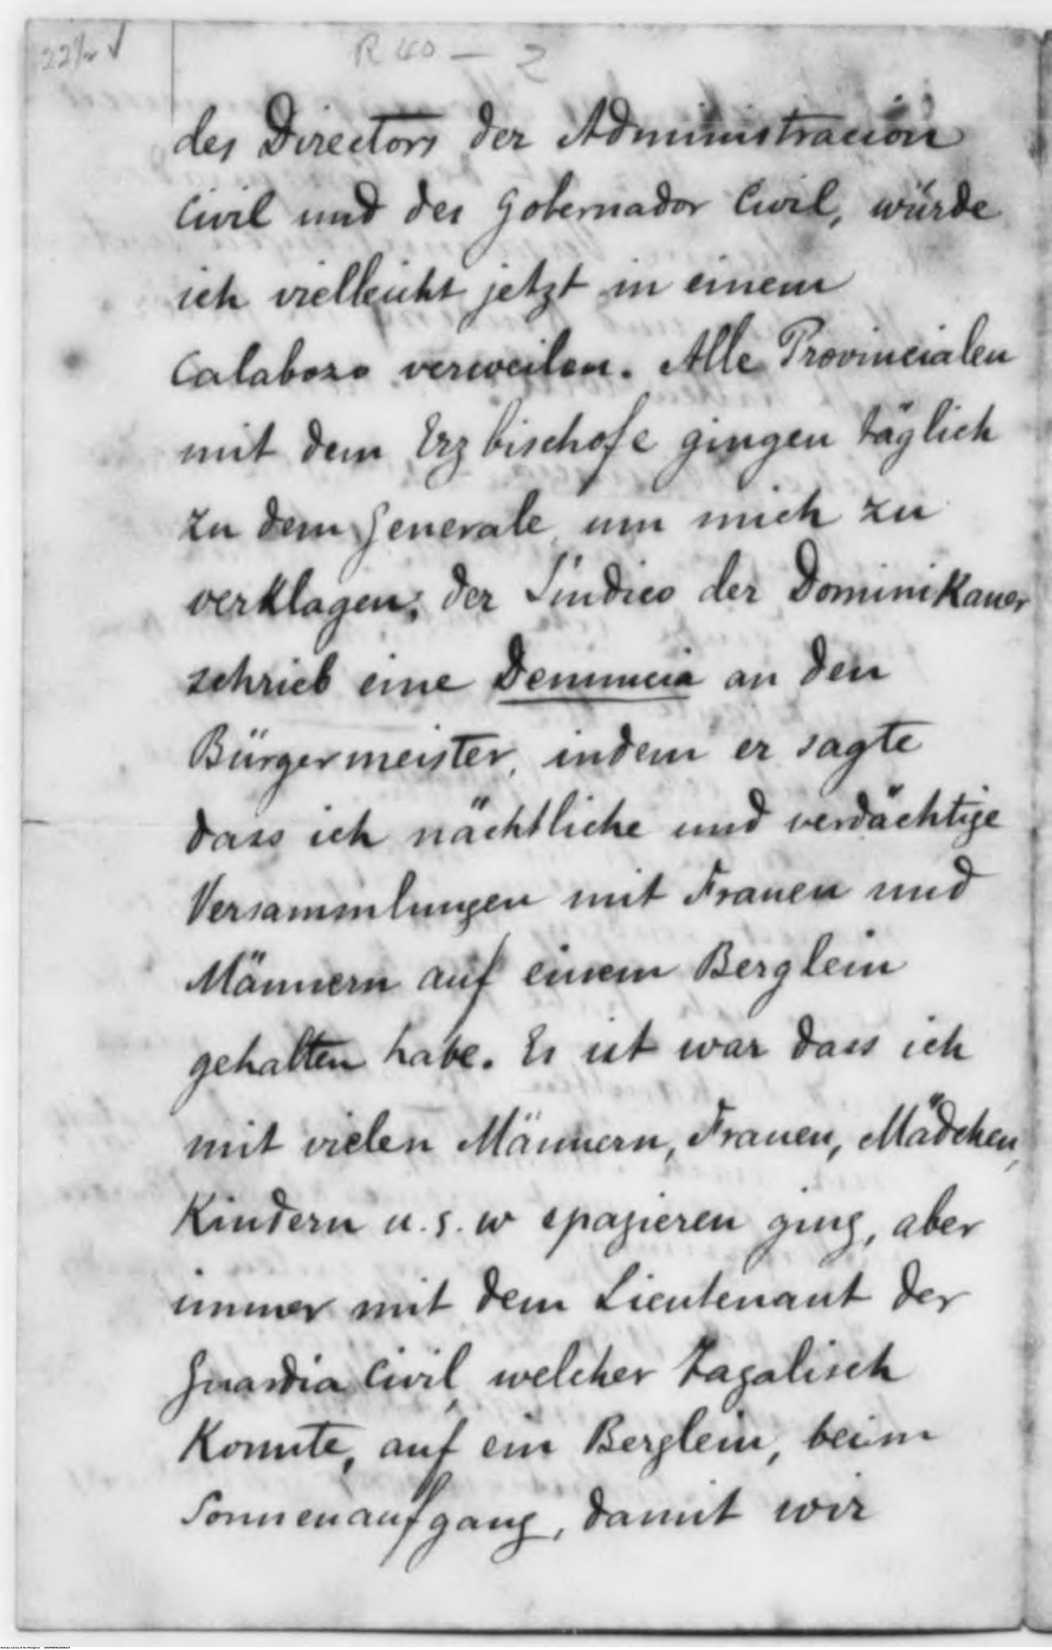 22½ ✓
R 40 — 2
des Directors der Administracion
Civil und des Gobernador Civil, würde
ich vielleicht jetzt in einem
Calabozo verweilen. Alle Provincialen
mit dem Erzbischofe gingen täglich
zu dem Generale um mich zu
verklagen; der Sindico der Dominikaner
schrieb eine Denuncia an den
Bürgermeister, indem er sagte
dass ich nächtliche und verdächtige
Versammlungen mit Frauen und
Männern auf einem Berglein
gehalten habe. Es ist war dass ich
mit vielen Männern, Frauen, Mädchen,
Kindern u. s. w spazieren ging, aber
immer mit dem Lieutenant der
Guardia Civil, welcher tagalisch
Konnte, auf ein Berglein, beim
Sonnenaufgang, damit wir